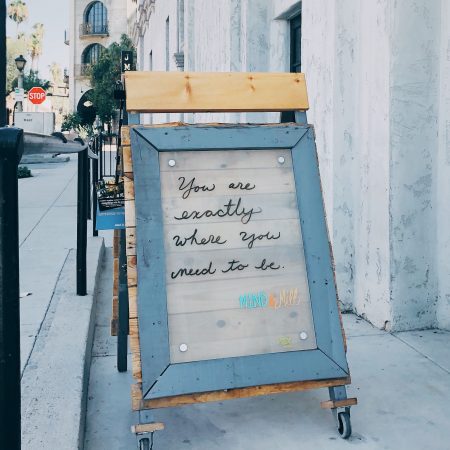 STOP
You are
exactly
where you
need to be.
MIND & MILL